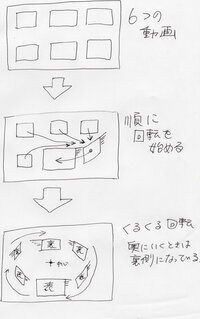 6つの
動画
順に
回転を
始める
くるくる回転
奥にいくときは
裏側になっている
裏
表